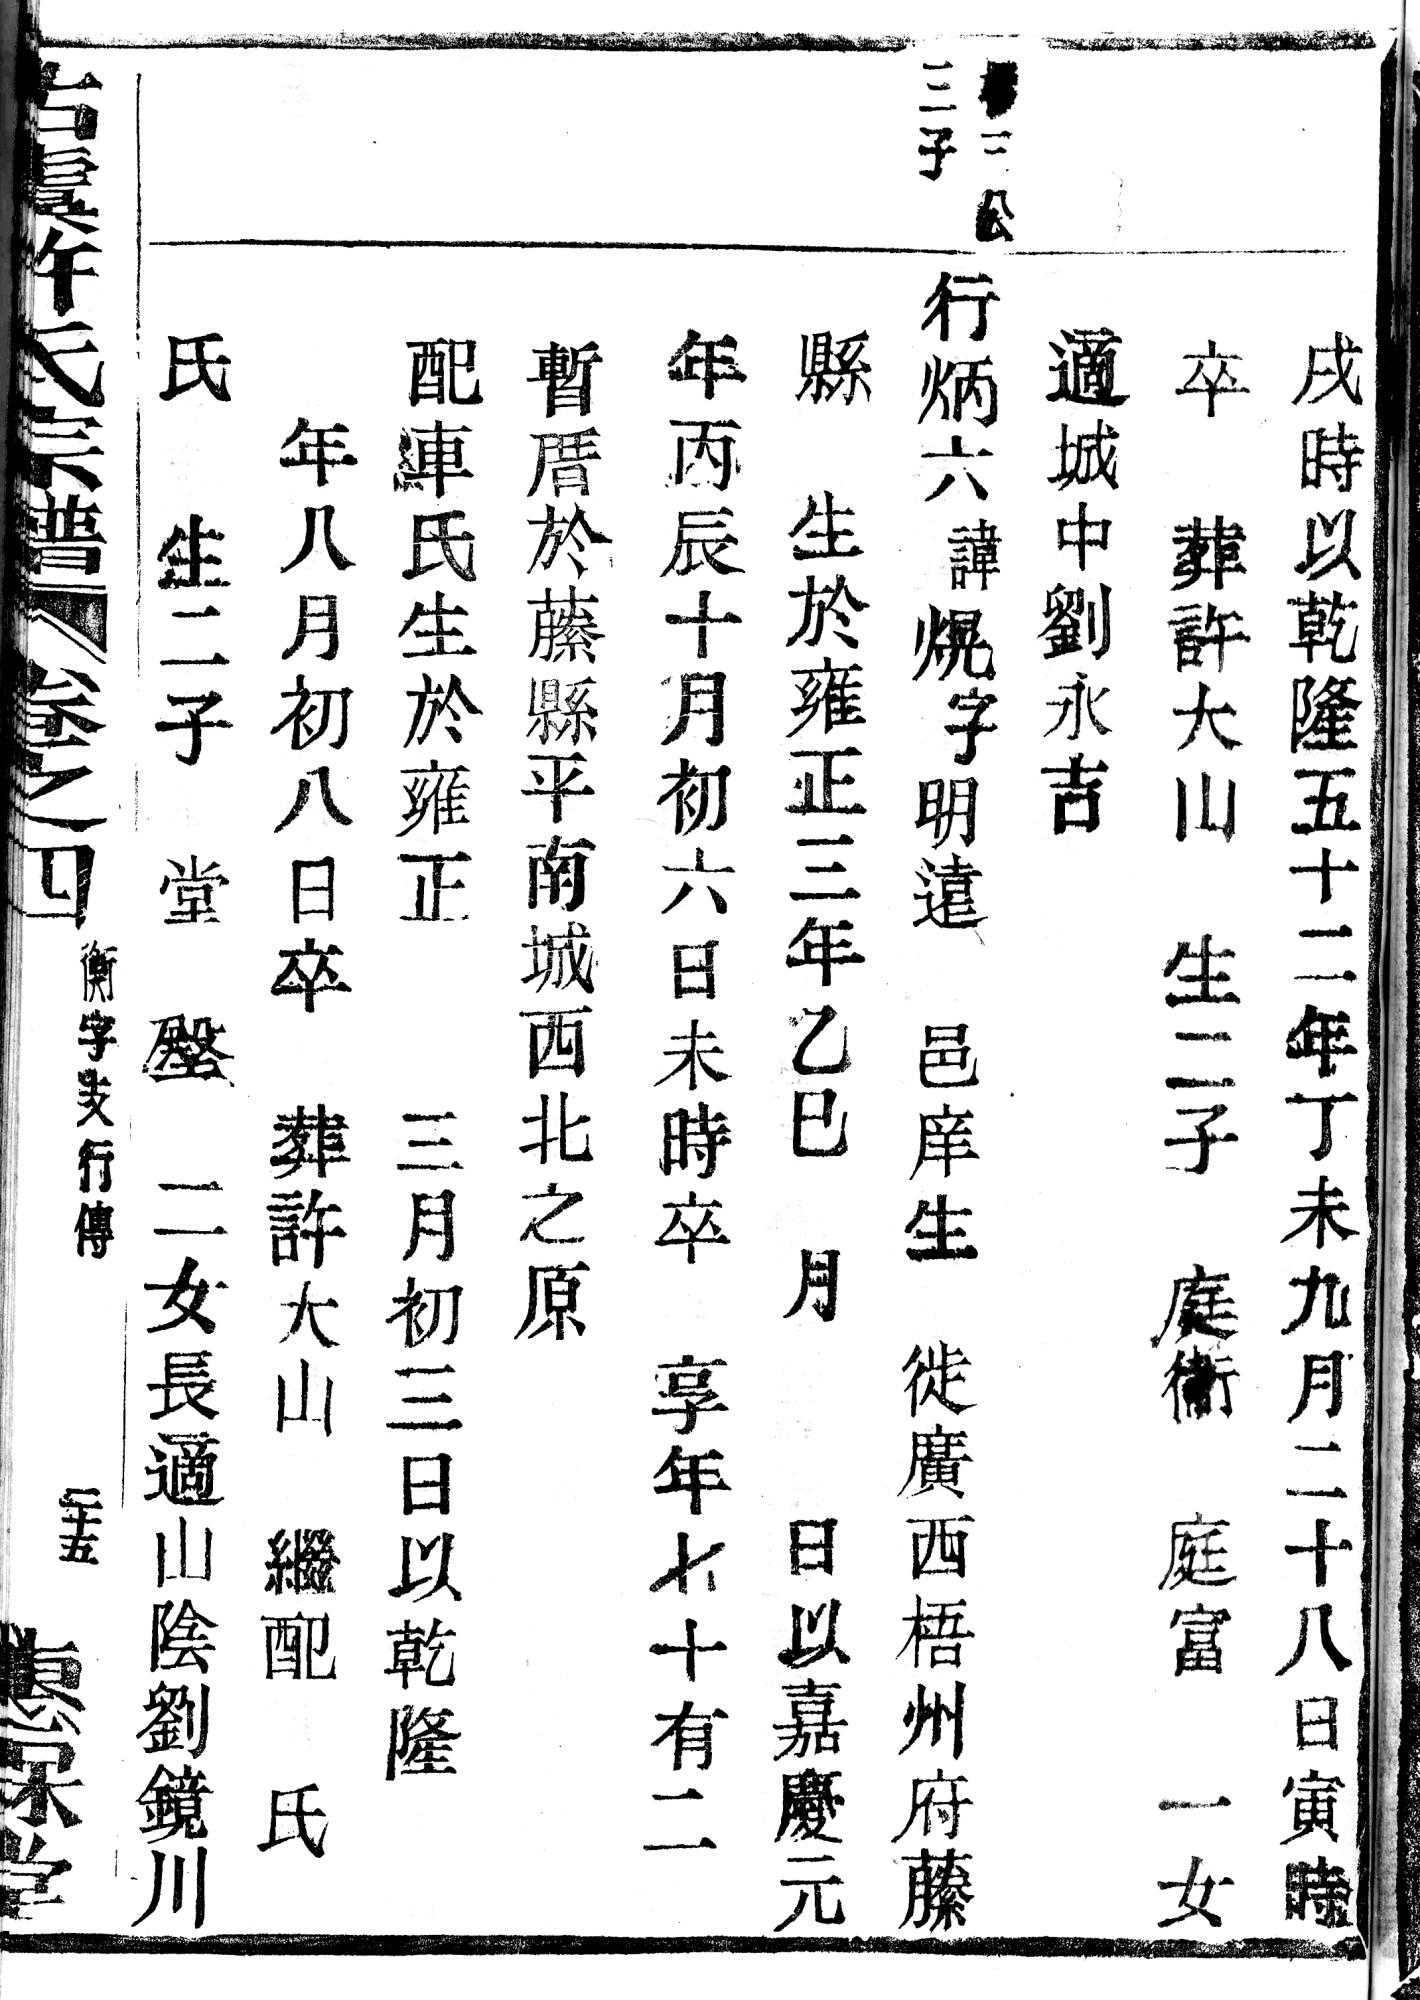 戌時以乾隆五十二年丁未九月二十八日寅時
卒　葬許大山　生二子　庭衛　庭富　一女
適城中劉永吉
三公
三子
行炳六諱熀字明遠　邑庠生　徙廣西梧州府藤
縣　生於雍正三年乙巳　月　日以嘉慶元
年丙辰十月初六日未時卒　享年七十有二
暫厝於藤縣平南城西北之原
配車氏生於雍正　三月初三日以乾隆
年八月初八日卒　葬許大山　繼配　氏
氏　生二子　堂　塈　二女長適山陰劉鏡川
古虞許氏宗譜　卷之四
衡字支行傳
二十五
惠宗堂